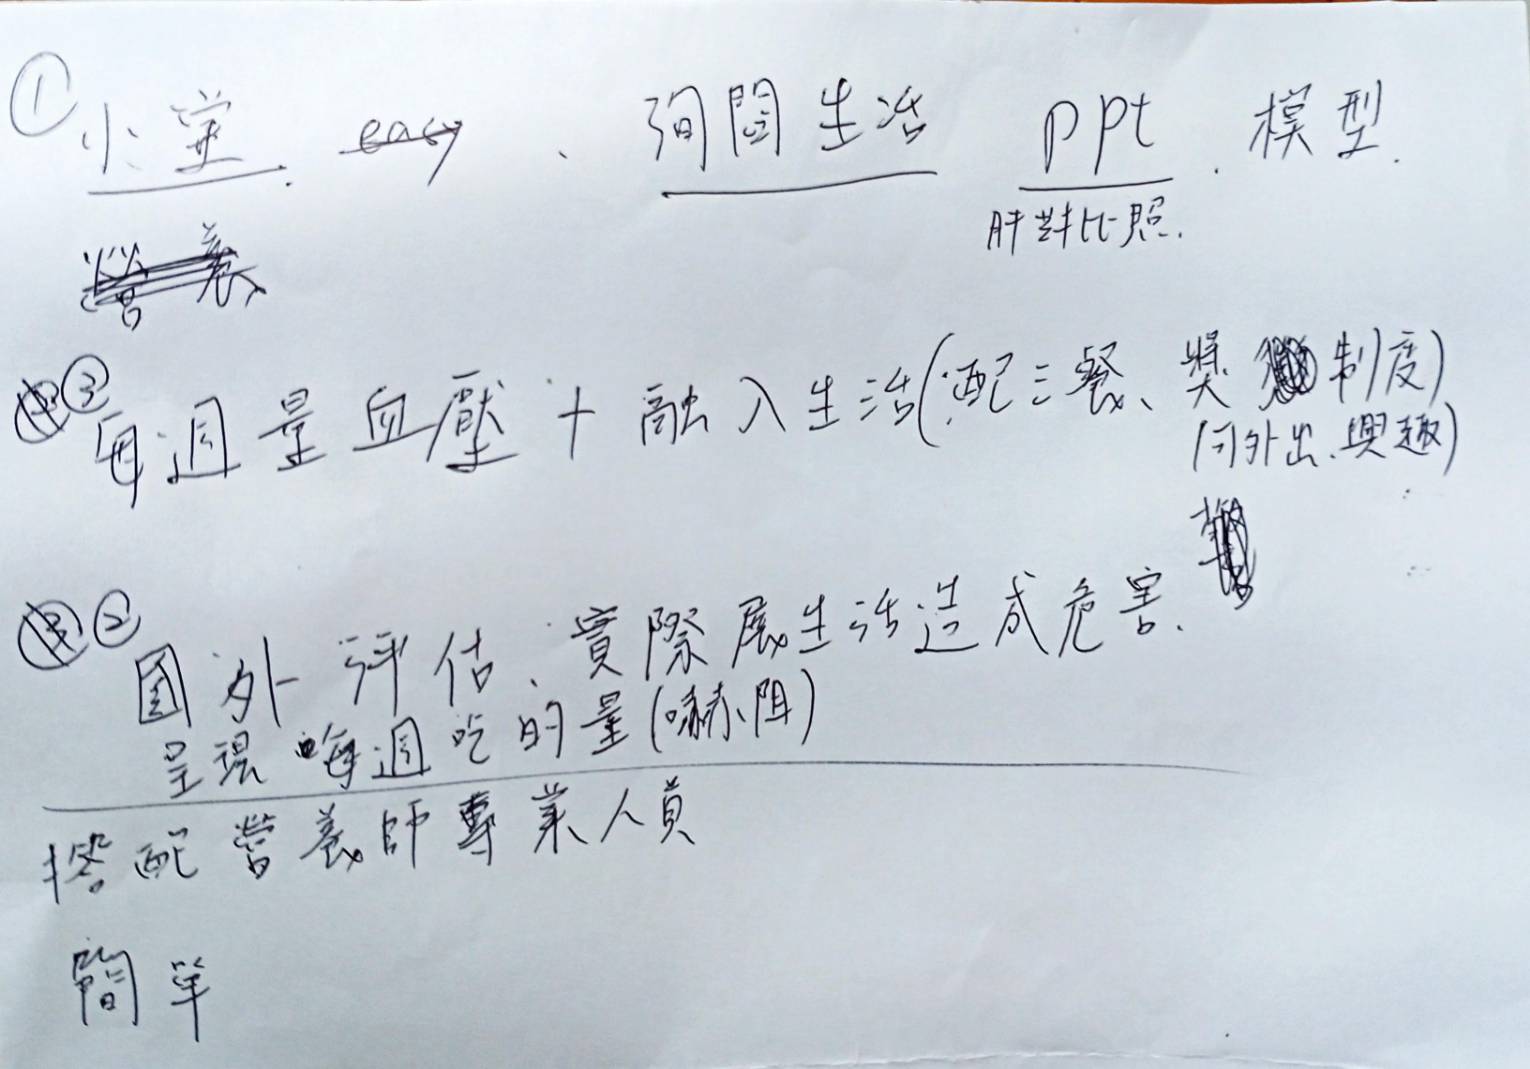 ① 小堂. easy、詢問生活 ppt. 模型.
肝對比照.
營養
③
每週量血壓+融入生活(配三餐、獎 制度)
何外出、興趣)
②
國外評估、實際展生活造成危害.
呈現每週吃的量(嚇阻)
搭配營養師專業人員
簡單